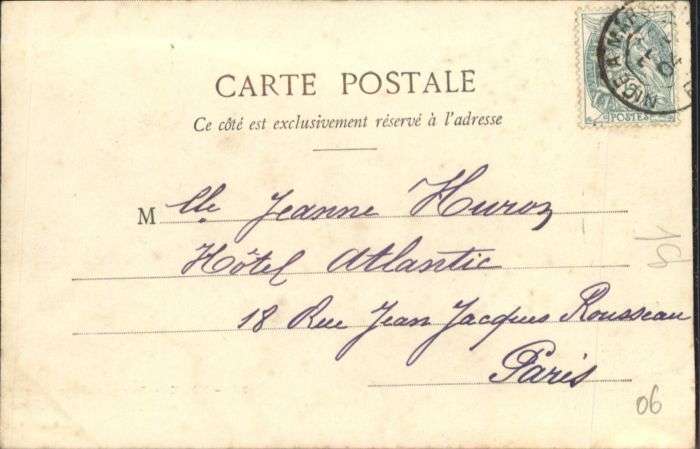 CARTE POSTALE
Ce côté est exclusivement réservé à l'adresse
Mlle Jeanne Huroz
Hôtel Atlantic
18 Rue Jean Jacques Rousseau
Paris
POSTES
06